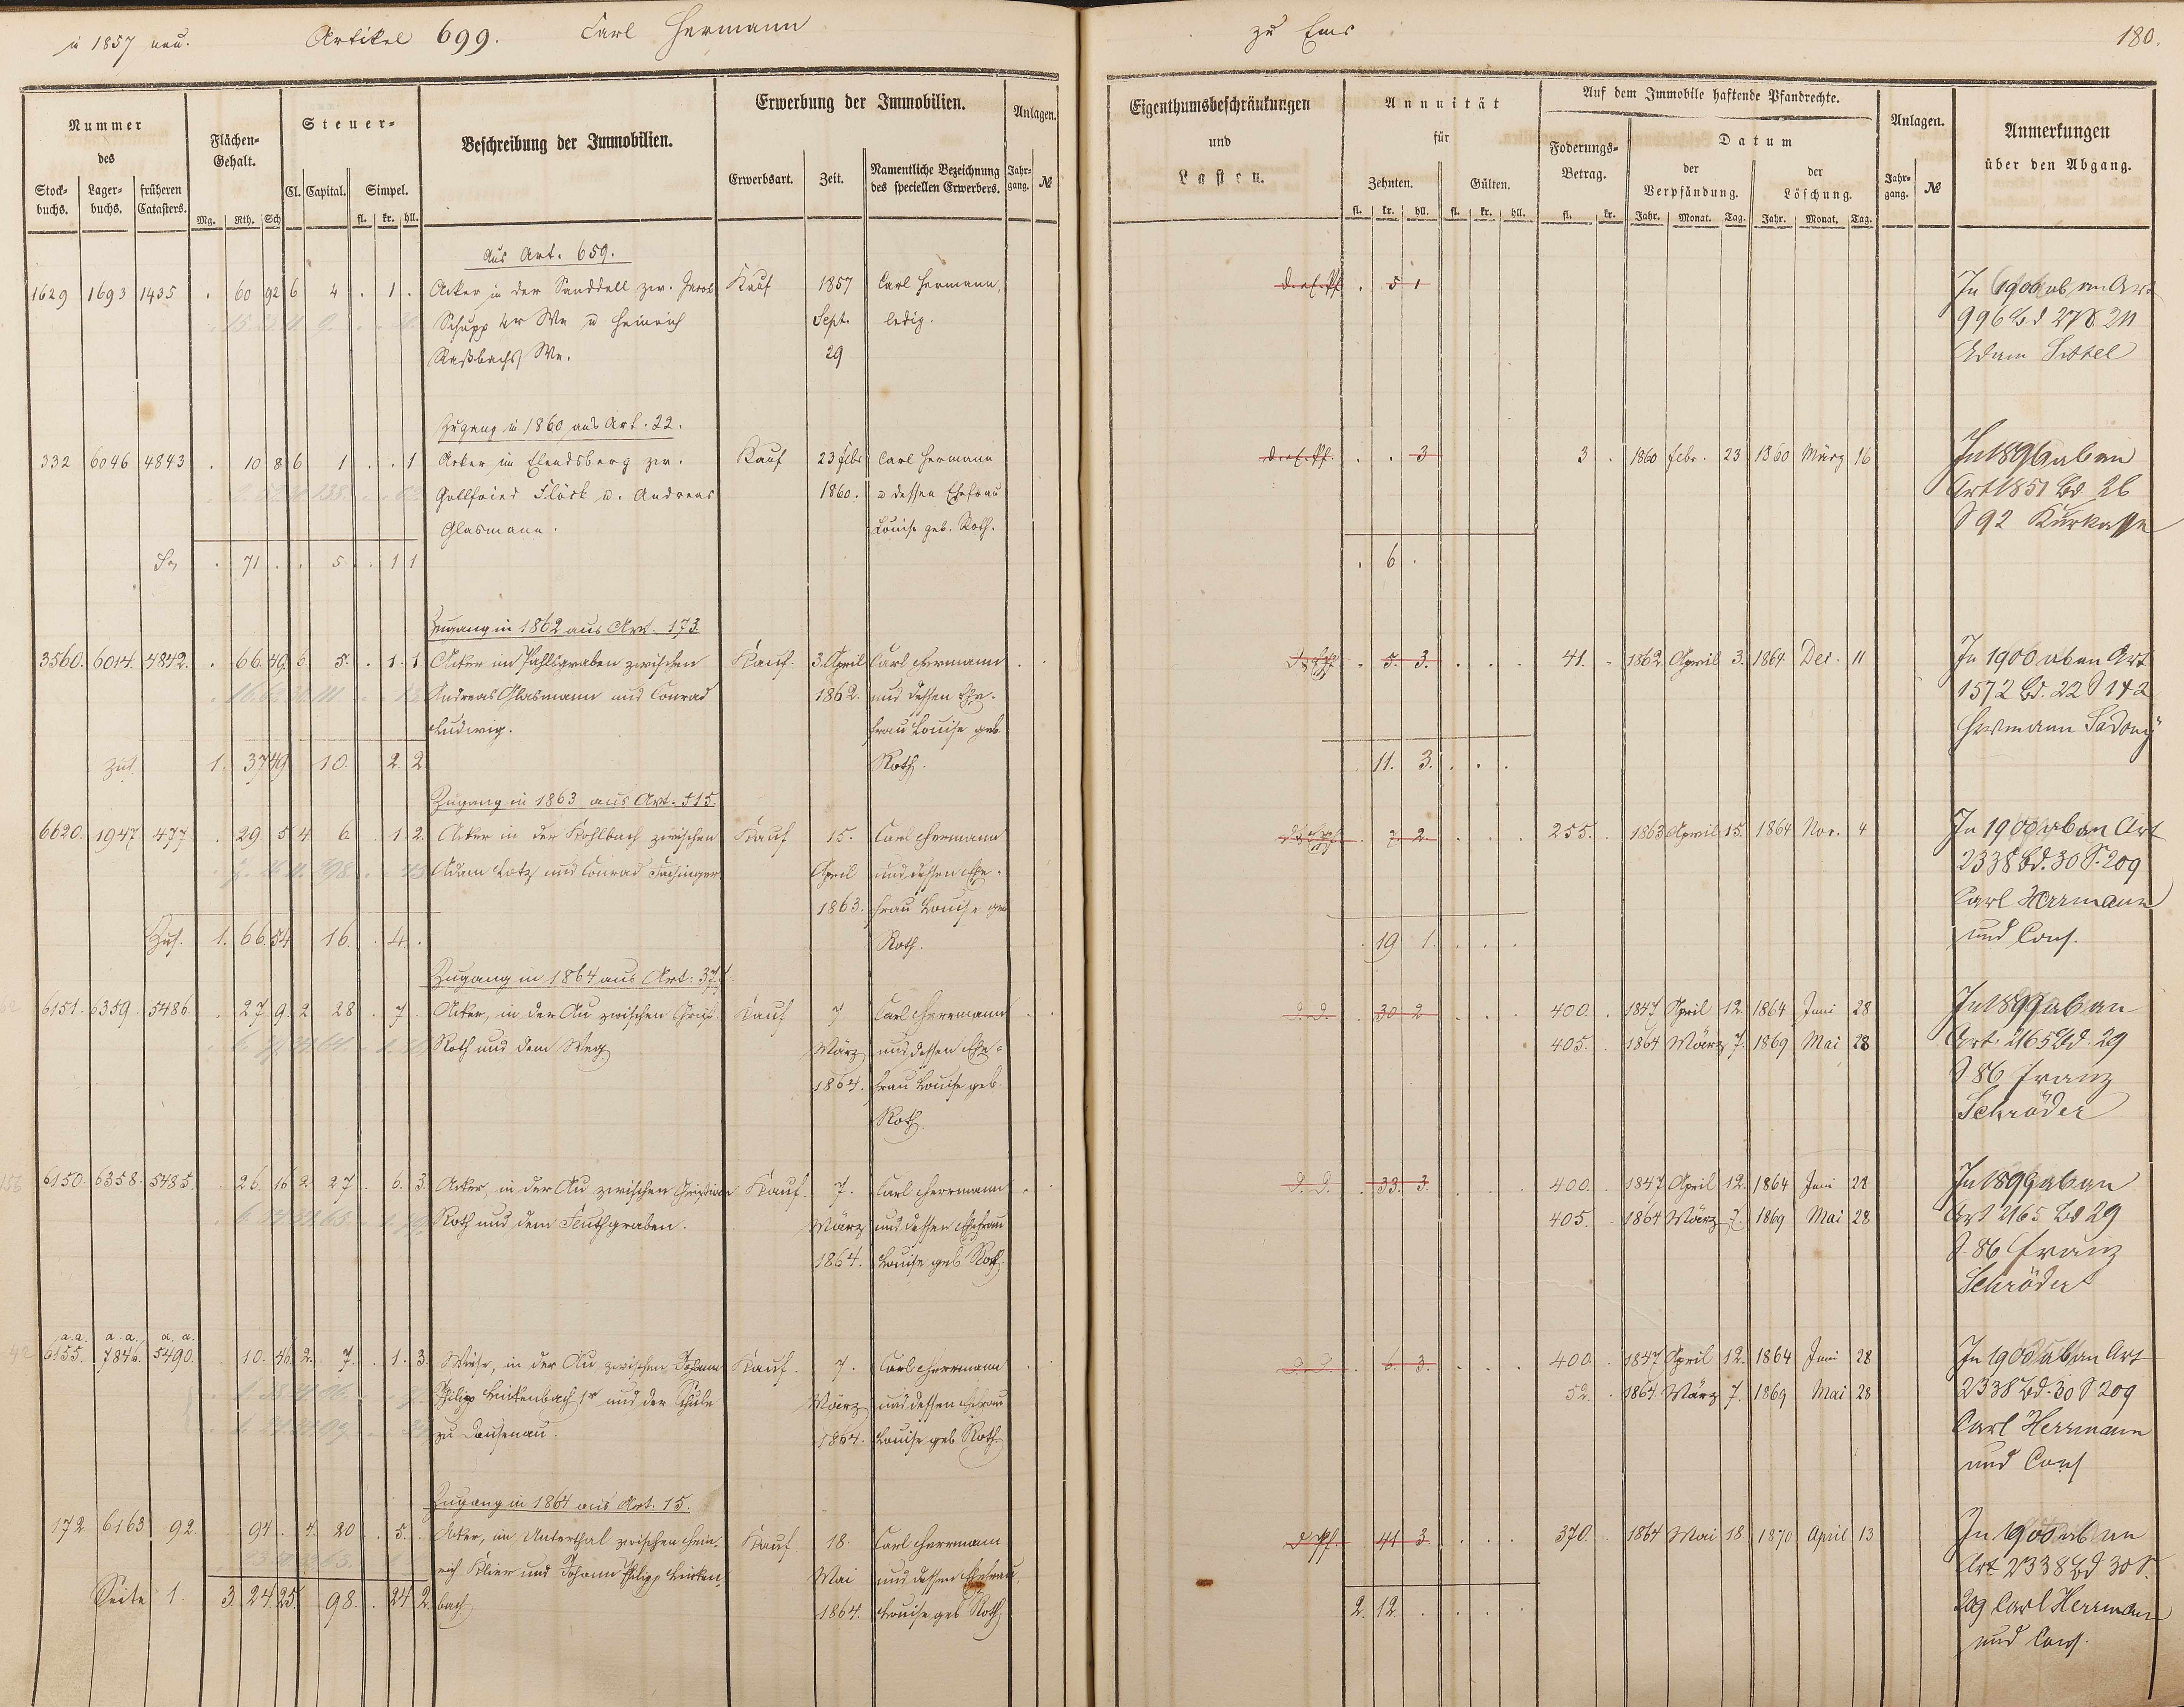 in 1857 neu. Artikel 699. Carl Hermann zu Ems 180.
Nummer des
Stockbuchs. Lagerbuchs. früheren Catasters.
Flächen-Gehalt.
Mg. Rth. Sch
Steuer-
Cl. Capital. Simpel.
fl. kr. hll.
Beschreibung der Immobilien.
Erwerbung der Immobilien.
Erwerbsart. Zeit. Namentliche Bezeichnung des speciellen Erwerbers.
Anlagen.
Jahrgang. №
Eigenthumsbeschränkungen
und
Lasten.
Annuität
für
Zehnten. Gülten.
fl. kr. hll. fl. kr. hll.
Auf dem Immobile haftende Pfandrechte.
Foderungs-Betrag.
fl. kr.
Datum
der Verpfändung. der Löschung.
Jahr. Monat. Tag. Jahr. Monat. Tag.
Anlagen.
Jahrgang. №
Anmerkungen
über den Abgang.
Aus Art. 659.
1629 1693 1435 . 60 92 6 4 . 1 . Acker in der Sanddell zw. Jacob Kauf 1857 Carl Hermann, . 5 1 In 1900 ab an Art
Schupp We u Heinrich Sept. ledig. 996 Bd 27 S 211
We. 29 Adam
Zugang in 1860 aus Art. 22.
332 6046 4843 . 10 8 6 1 . . 1 Acker im Elendsberg zw. Kauf 23 Febr Carl Hermann . . 3 3 . 1860 Febr. 23 1860 März 16 In 1896 ab an
Gottfried Flöck u. Andreas 1860. u dessen Ehefrau Art 1851 Bd 26
Glasmann. Louise geb. Roth. S 92 Kurkasse
Sa . 71 . . 5 . 1 1 . 6 .
Zugang in 1862 aus Art. 173.
3560. 6014. 4842. . 66. 49. 6. 5. . 1. 1. Acker im Pfahlgraben zwischen Kauf. 3. April Carl Hermann . 5. 3. 41. 1862. April 3. 1864 Dec. 11 In 1900 ab an Art
Andreas Glasmann und Conrad 1862. und dessen Ehe- 1572 Bd. 22 S 142
Ludwig. frau Louise geb. Hermann
zus. 1. 37 49 10. 2. 2. Roth. 11. 3.
Zugang in 1863 aus Art. 515.
6620. 1947 477 . 29 5 4 6 . 1 2. Acker in der Kohlbach zwischen Kauf 15. Carl Hermann . 7. 2. 255. 1863 April 15. 1864 Nov. 4 In 1900 ab an Art
Adam Lotz und Conrad Fachinger April und dessen Ehe- 2338 Bd. 30 S. 209
1863. frau Louise geb Carl Herrmann
Zus. 1. 66. 54 16. . 4. . Roth. . 19 1. und Cons.
Zugang in 1864 aus Art. 377.
6151. 6359. 5486. . 27 9. 2 28 . 7. Acker, in der Au zwischen Kauf 7 Carl Herrmann . 30 2 400. 1847 April 12. 1864 Juni 28 In 1899 ab an
Roth und dem Weg März und dessen Ehe- 405. 1864 März 7. 1869 Mai 28 Art. 2165 Bd. 29
1864. frau Louise geb. S 86 Franz
Roth. Schröder
6150. 6358. 5485. 26. 16 2 27 . 6. 3. Acker, in der Au zwischen Christian Kauf. 7. Carl Herrmann . 33. 3. 400. 1847 April 12. 1864 Juni 28 In 1899 ab an
Roth und dem Fluthgraben. März und dessen Ehefrau 405. 1864 März 7. 1869 Mai 28 Art 2165 Bd 29
1864. Louise geb Roth. S. 86 Franz
Schröder
a. a. a. a. a. a.
6155. 7846. 5490. 10. 46. 2. 7. . 1. 3. Wiese, in der Au zwischen Johann Kauf. 7. Carl Herrmann . 6. 3. 400. 1847 April 12. 1864 Juni 28 In 1900 ab an Art
Philipp Linkenbach 1r und der Schule März und dessen Ehefrau 52. 1864 März 7. 1869 Mai 28 2338 Bd. 30 S 209
zu Dausenau. 1864. Louise geb Roth. Carl Herrmann
und Cons
Zugang in 1864 aus Art. 15.
172 6163 92. 94. 4. 20 . 5. . Acker, im Unterthal zwischen Hein- Kauf. 18. Carl Herrmann 44 3. 370. 1864 Mai 18. 1870 April 13 In 1900 ab an
rich Klier und Johann Philipp Linken- Mai und dessen Ehefrau Art 2338 Bd 30 S.
Seite 1. 3. 24. 25. 98. . 24 2. bach 1864. Louise geb Roth. 2. 12. 209 Carl Herrmann
und Cons.